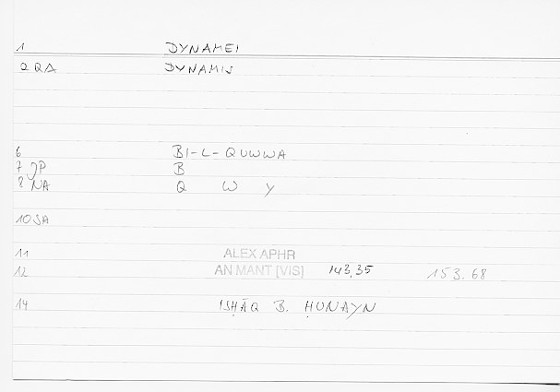 1 DYNAMEI
2 QA DYNAMIS
6 BI-L-QUWWA
7 JP B
8 NA Q W Y
10 SA
11 ALEX APHR
12 AN MANT [VIS] 143,35 153.68
14 ISḤĀQ B. ḤUNAYN